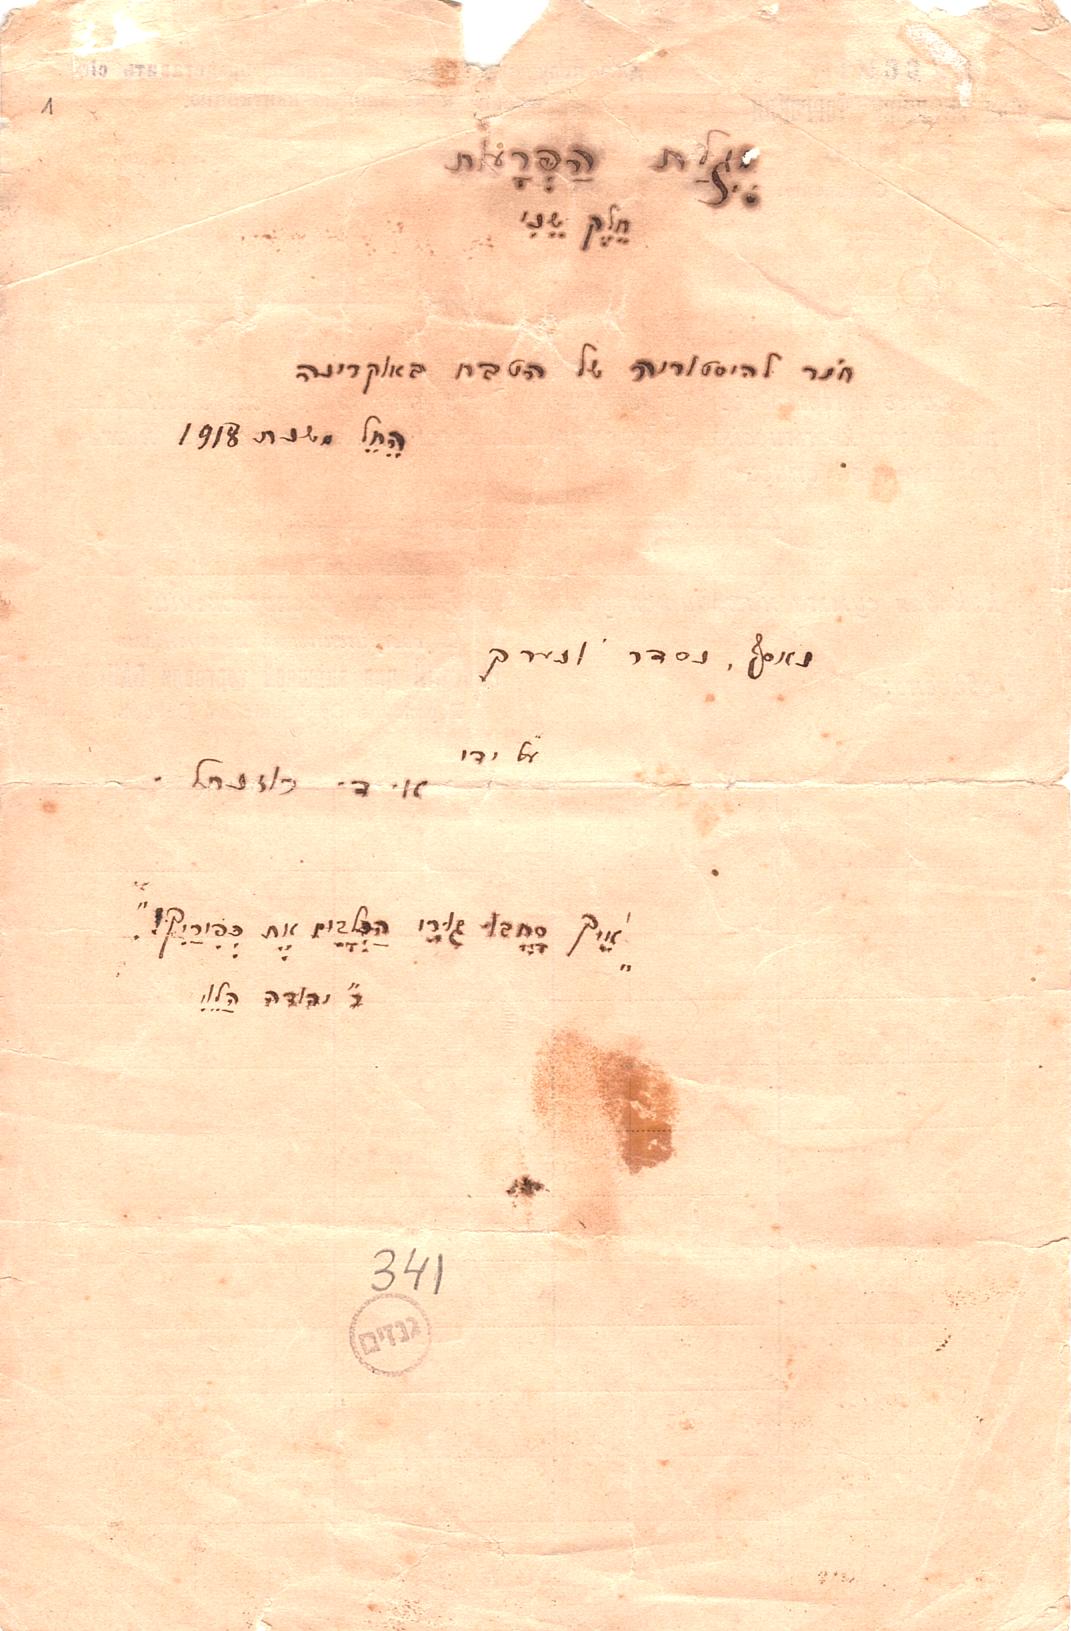 1
מגילת הַפְּרָעות
חֵלֶק שֵׁנִי
חמר להיסטוריה של הטבח באוקרינה
הָחֵל משנת 1918
נאסף, נסדר ונערך
על ידי
א. ד. רוזנטל.
"אֵיךְ סָחֲבוּ גּוּרֵי הַכְּלָבִים אֶת כְּפִירַיִךְ!"
ר' יהודה הַלֵוִי
341
גנזים